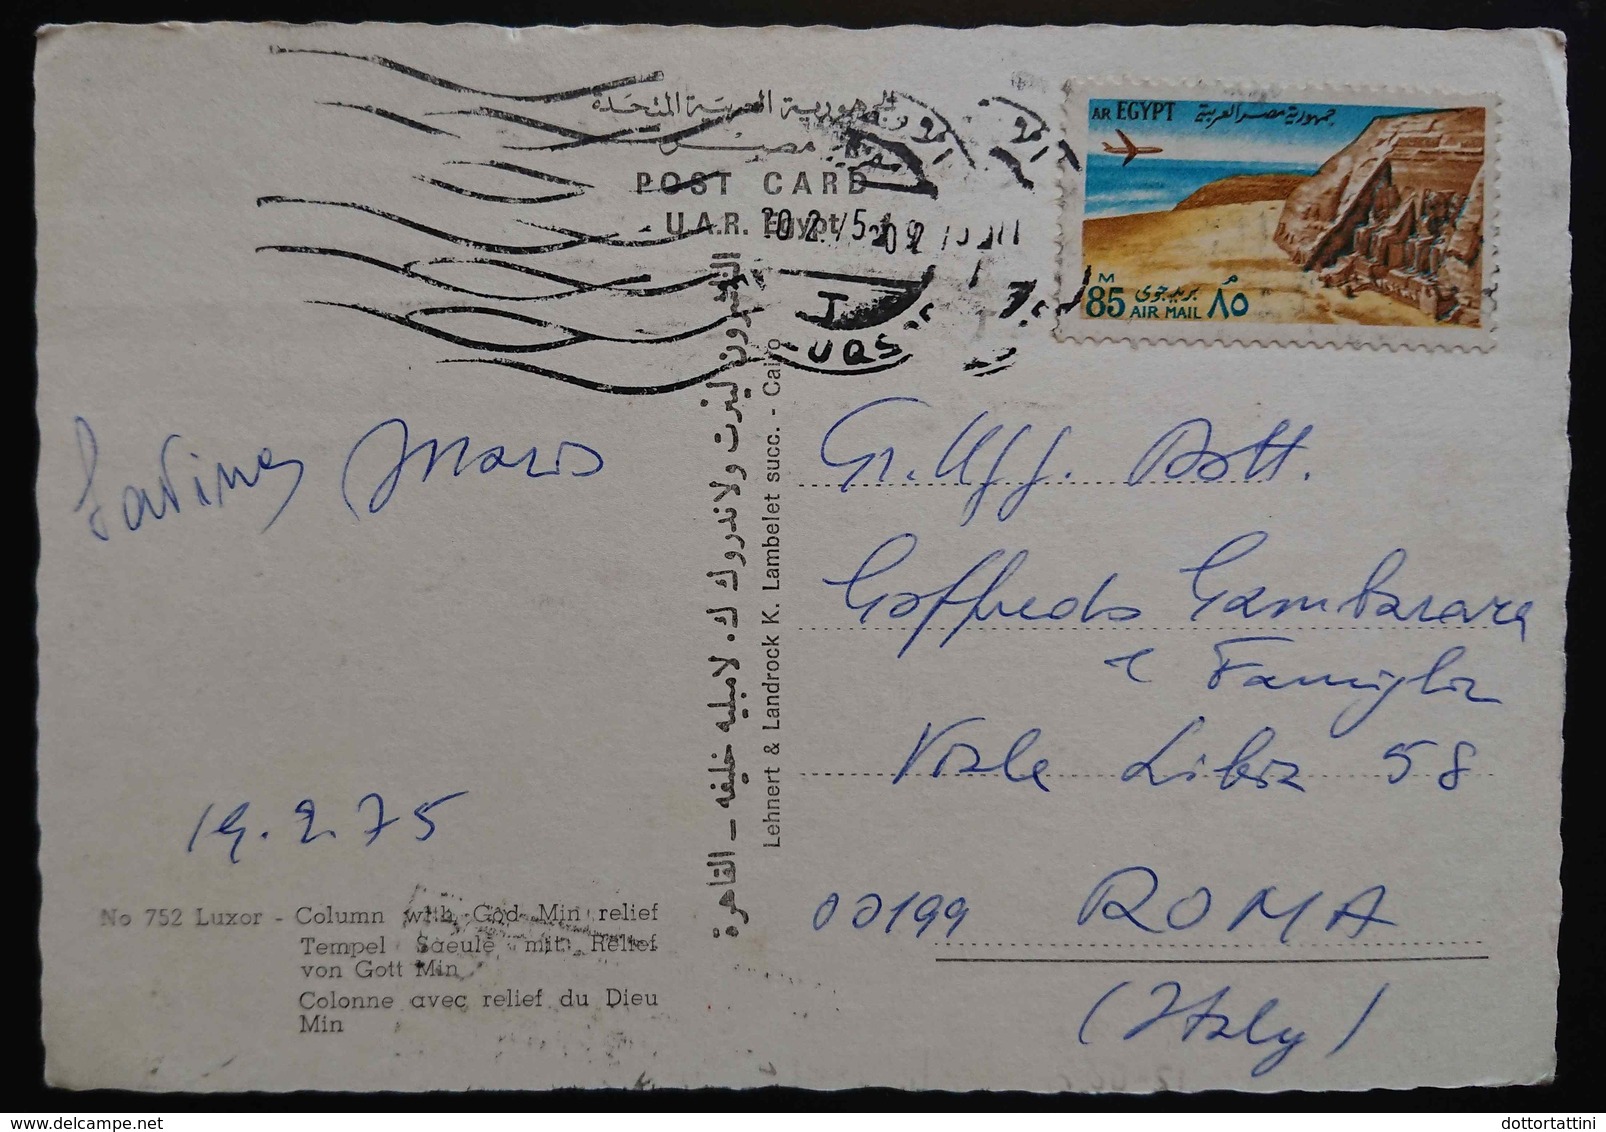 الجمهورية العربية المتحدة
مصر
POST CARD
U.A.R. Egypt
20 2 75
AR EGYPT جمهورية مصر العربية
M
85 بريد جوى ٨٥
AIR MAIL
الناشرون لينرت ولاندروك ك. لامبليه خليفه - القاهرة
Lehnert & Landrock K. Lambelet succ. - Cairo
19.2.75
No 752 Luxor - Column with God Min relief
Tempel Saeule mit Relief
von Gott Min
Colonne avec relief du Dieu
Min
Gr. Uff. Dott.
Goffredo Gambarara
e Famiglia
Viale Libia 58
00199 ROMA
(Italy)
dottortattini